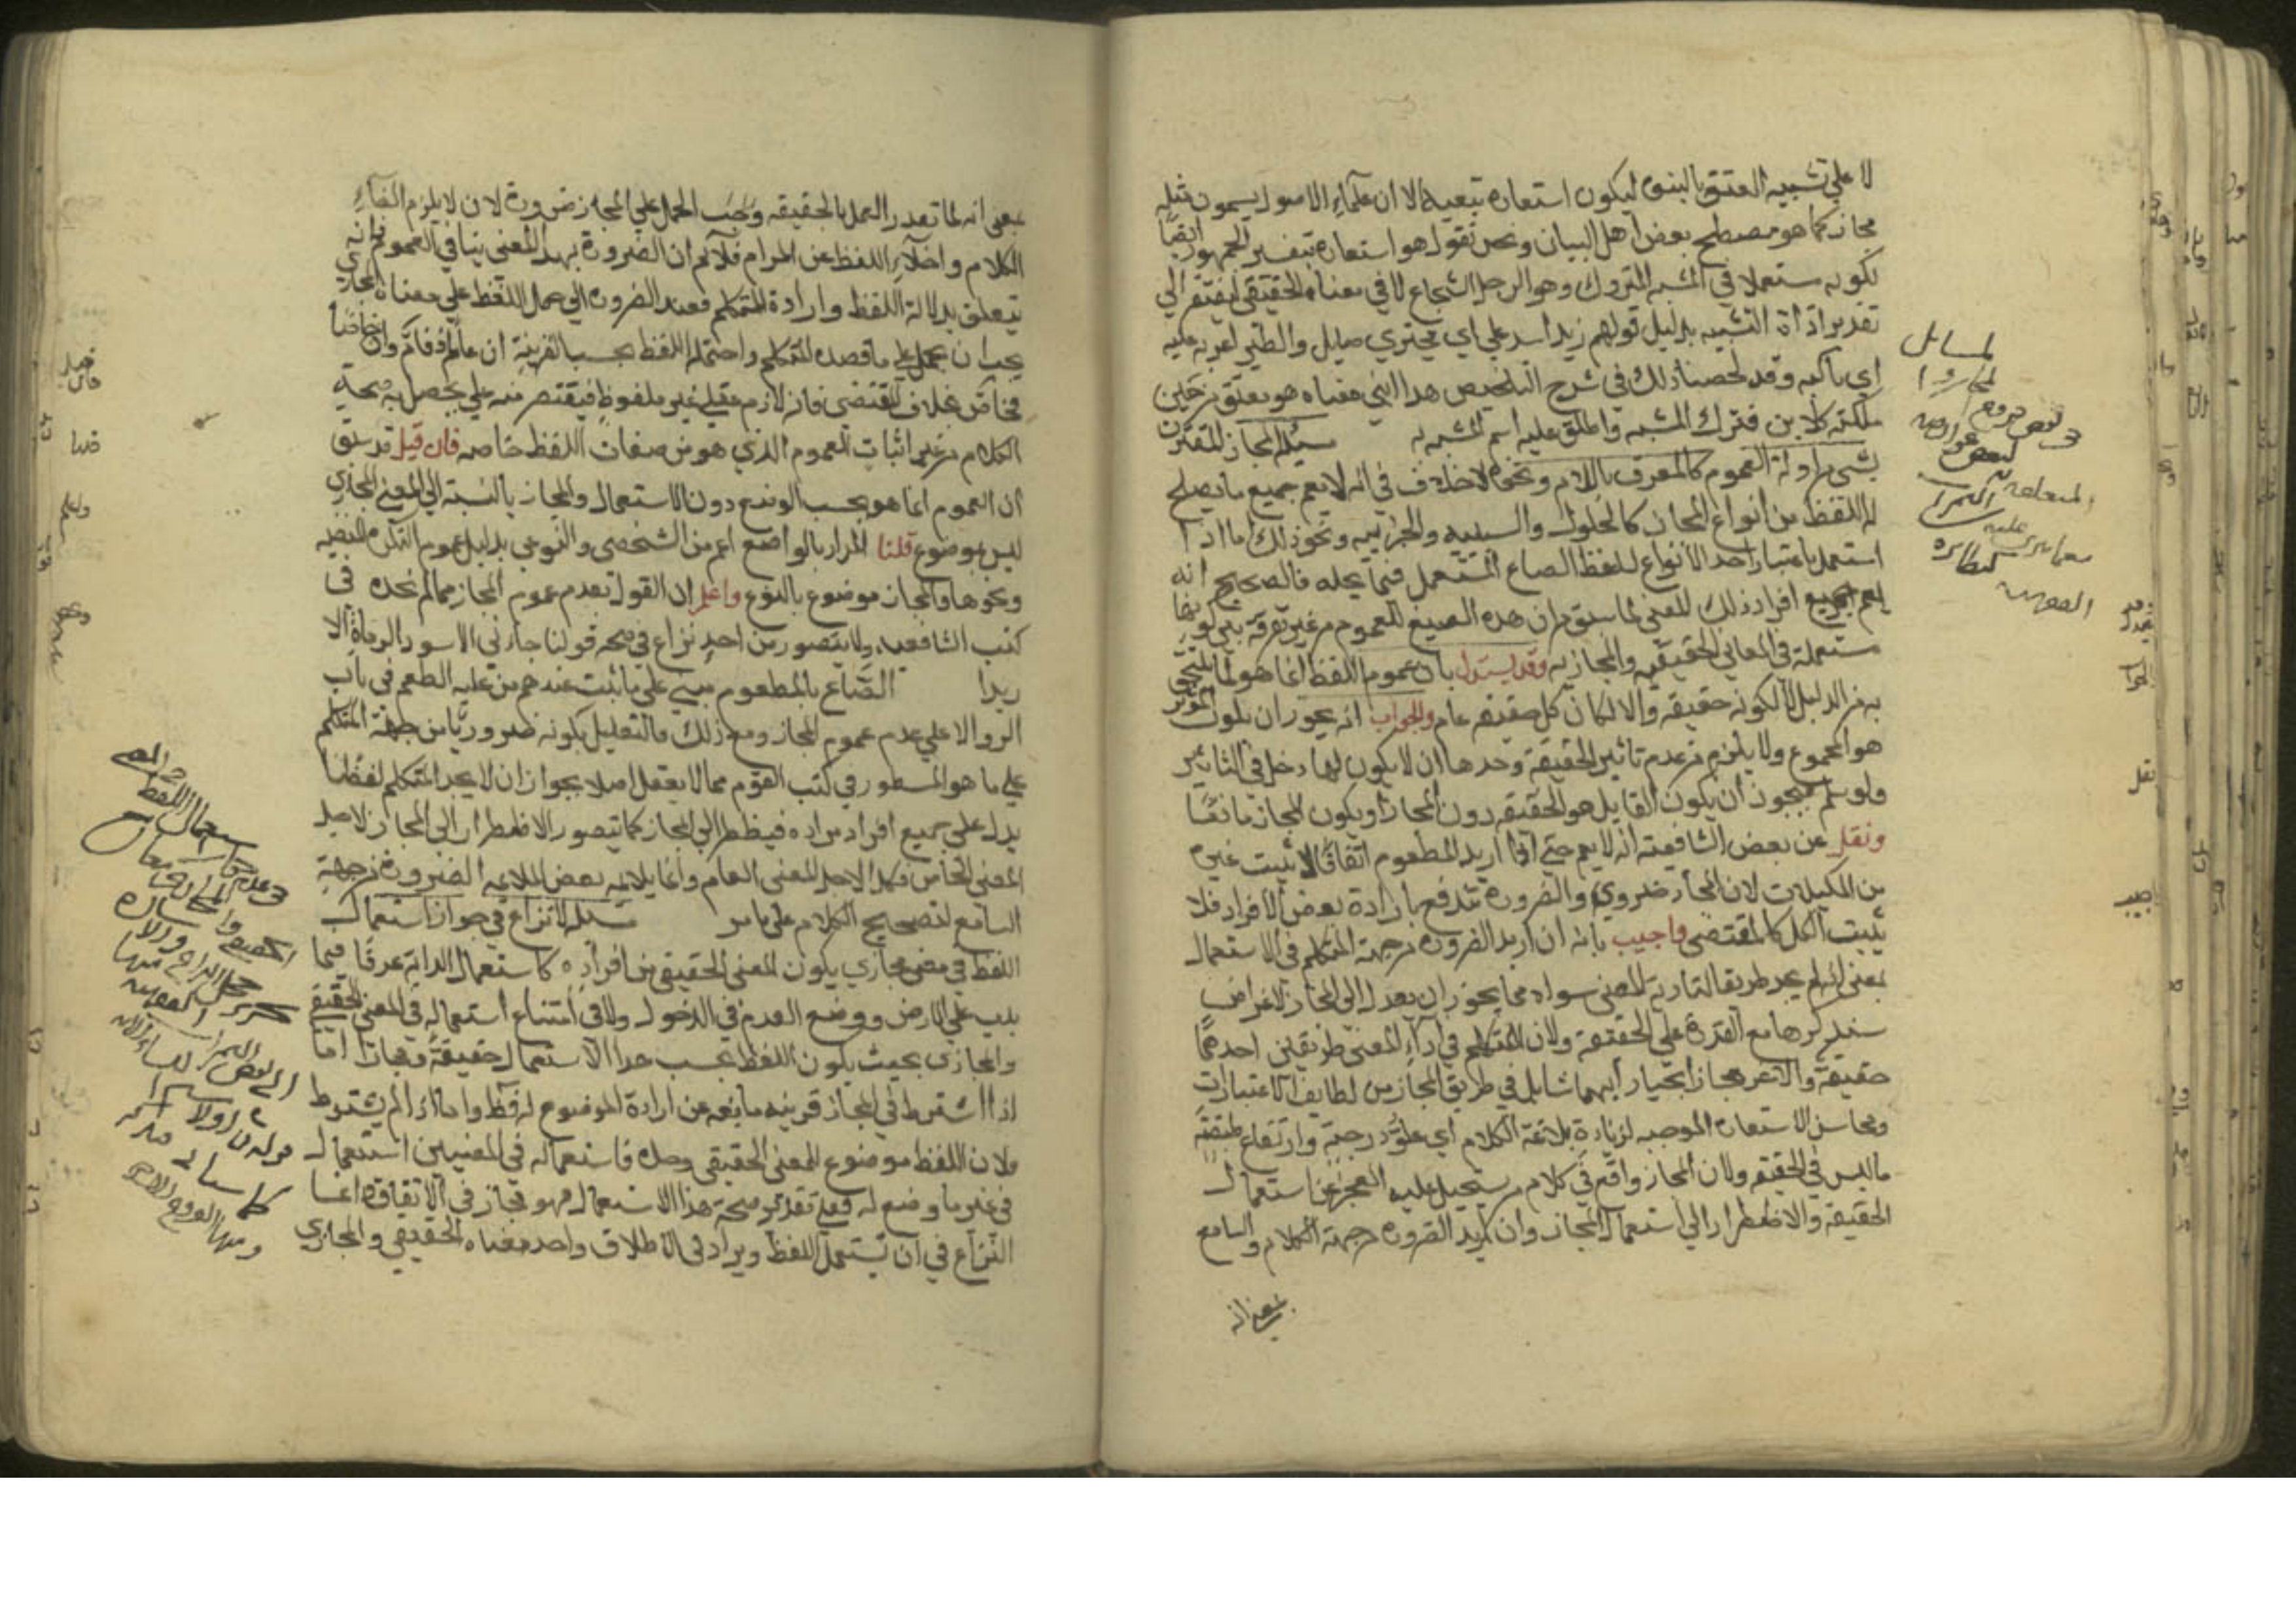 لا علي تشبيه العتق بالبنوة ليكون استعارة تبعية الا ان علماء الاصول يسمون مثله
مجاز كما هو مصطلح بعض اهل البيان ونحن نقول هو استعارة بتفسير الجمهور ايضًا
لكونه مستعملا في المشبه المتروك وهو الرجل الشجاع لا في معناه الحقيقي ليفتقر الي
تقدير اداة التشبيه بدليل قولهم زيد اسد علي اي مجتري صايل والطير اغربة عليه
اي باكية وقد لخصنا ذلك في شرح التلخيص هذا ابني معناه هو معتق من حين
ملكته كالابن فترك المشبه واطلق عليه اسم المشبه به مسئلة المجاز المقترن
بشئ من ادلة العموم كالمعرف باللام ونحوه لا خلاف في انه لا يعم جميع ما يصلح
له اللفظ من انواع المجاز كالحلول والسببية والجزئيه ونحو ذلك اما اذا
استعمل باعتبار احد الانواع كلفظ الصاع المستعمل فيما يحله فالصحيح انه
يعم جميع افراد ذلك المعني لما سبق من ان هذه الصيغ للعموم من غير تفرقة بين كونها
مستعملة في المعاني الحقيقيه والمجازيه وقد يستدل بان عموم اللفظ انما هو لما يلتحق
به من الدليل لا لكونه حقيقه والا لكان كل حقيقه عام والجواب انه يجوز ان يكون المؤثر
هو المجموع ولا يلزم من عدم تاثير الحقيقة وحدها ان لا يكون لها دخل في التاثير
ولو سلم فيجوز ان يكون القابل هو الحقيقه دون المجاز او يكون المجاز مانعًا
ونقل عن بعض الشافعية انه لا يعم حتي اذا اريد المطعوم اتفاقًا لا يثبت غيره
من المكيلات لان المجاز ضروري والضرورة تندفع بارادة بعض الافراد فلا
يثبت الكل كالمقتضي واجيب بانه ان اريد الضرورة من جهة المتكلم في الاستعمال
بمعني انه لم يجد طريقا لتادية المعني سواه فما يجوز ان يعدل الي المجاز لاغراض
سنذكرها مع القدرة علي الحقيقة ولان للمتكلم في اداء المعني طريقين احدهما
حقيقة والاخر مجاز يختار ايهما شا بل في طريق المجاز من لطايف الاعتبارات
ومحاسن الاستعارة الموجبه لزيادة بلاغة الكلام اي علو درجته وارتفاع طبقته
ما ليس في الحقيقه ولان المجاز واقع في كلام من يستحيل عليه العجز عن استعمال
الحقيقة والاضطرار الي استعمال المجاز وان اريد الضرورة من جهة الكلام والسامع
بمعني انه
لمسايل
المجاز
بمعني انه لما تعذر العمل بالحقيقه وجب الحمل علي المجاز ضرورة لان لا يلزم الغاء
الكلام واخلاء اللفظ عن المرام فلا نم ان الضرورة بهذا المعني ينافي العموم فانه
يتعلق بدلالة اللفظ وارادة المتكلم فعند الضرورة الي حمل اللفظ علي معناه المجازي
يجب ان يحمل علي ما قصده المتكلم واحتمله اللفظ بحسب القرينة ان عامًا فعام وان خاصًا
فخاص بخلاف المقتضي فانه لازم عقلي غير ملفوظ فيقتصر منه علي ما يحصل به صحة
الكلام من غير اثبات العموم الذي هو من صفات اللفظ خاصه فان قيل قد سبق
ان العموم انما هو بحسب الوضع دون الاستعمال والمجاز بالنسبة الي المعني المجازي
ليس بموضوع قلنا المراد بالواضع اعم من الشخصي والنوعي بدليل عموم النكرة المنفيه
ونحوها والمجاز موضوع بالنوع واعلم ان القول بعدم عموم المجاز مما لم نجده في
كتب الشافعيه ولا يتصور من احد نزاع في صحة قولنا جاءني الاسود الرماة الا
زيدا الصاع بالمطعوم مبني علي ما ثبت عندهم من علية الطعم في باب
الربوا لا علي عدم عموم المجاز ومع ذلك فالتعليل بكونه ضروريًا من جهة المتكلم
علي ما هو المسطور في كتب القوم مما لا يعقل اصلا بجواز ان لا يجد المتكلم لفظا
يدل علي جميع افراد مراده فيضطر الي المجاز كما يتصور الاضطرار الي المجاز لاجل
المعني الخاص فكذا لاجل المعني العام وانما يلايمه بعض الملايمه الضرورة من جهة
السامع لتصحيح الكلام علي ما مر مسئلة لا نزاع في جواز استعمال
اللفظ في معني مجازي يكون المعني الحقيقي من افراده كاستعمال الدابة عرفًا فيما
يدب علي الارض ووضع القدم في الدخول ولا في امتناع استعماله في المعني الحقيقي
والمجازي بحيث يكون اللفظ بحسب هذا الاستعمال حقيقة ومجازا اما
اذا اشترط في المجاز قرينه مانعه عن ارادة الموضوع له فظ واما اذا لم يشترط
فلان اللفظ موضوع للمعني الحقيقي وحده فاستعماله في المعنيين استعمال
في غير ما وضع له فعلي تقدير صحة هذا الاستعمال فهو مجاز في الاتفاق وانما
النزاع في ان يستعمل اللفظ ويراد في الاطلاق واحد معناه الحقيقي والمجازي
استعمال اللفظ